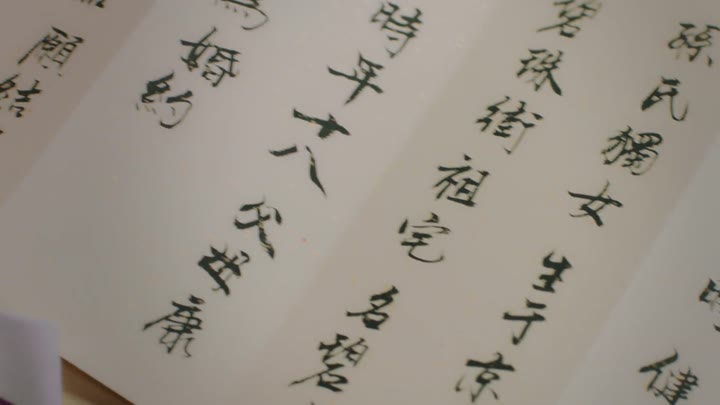 健
孫氏獨女 生于京
珠街祖宅 名碧
時年十八 父世康
為婚約
願結